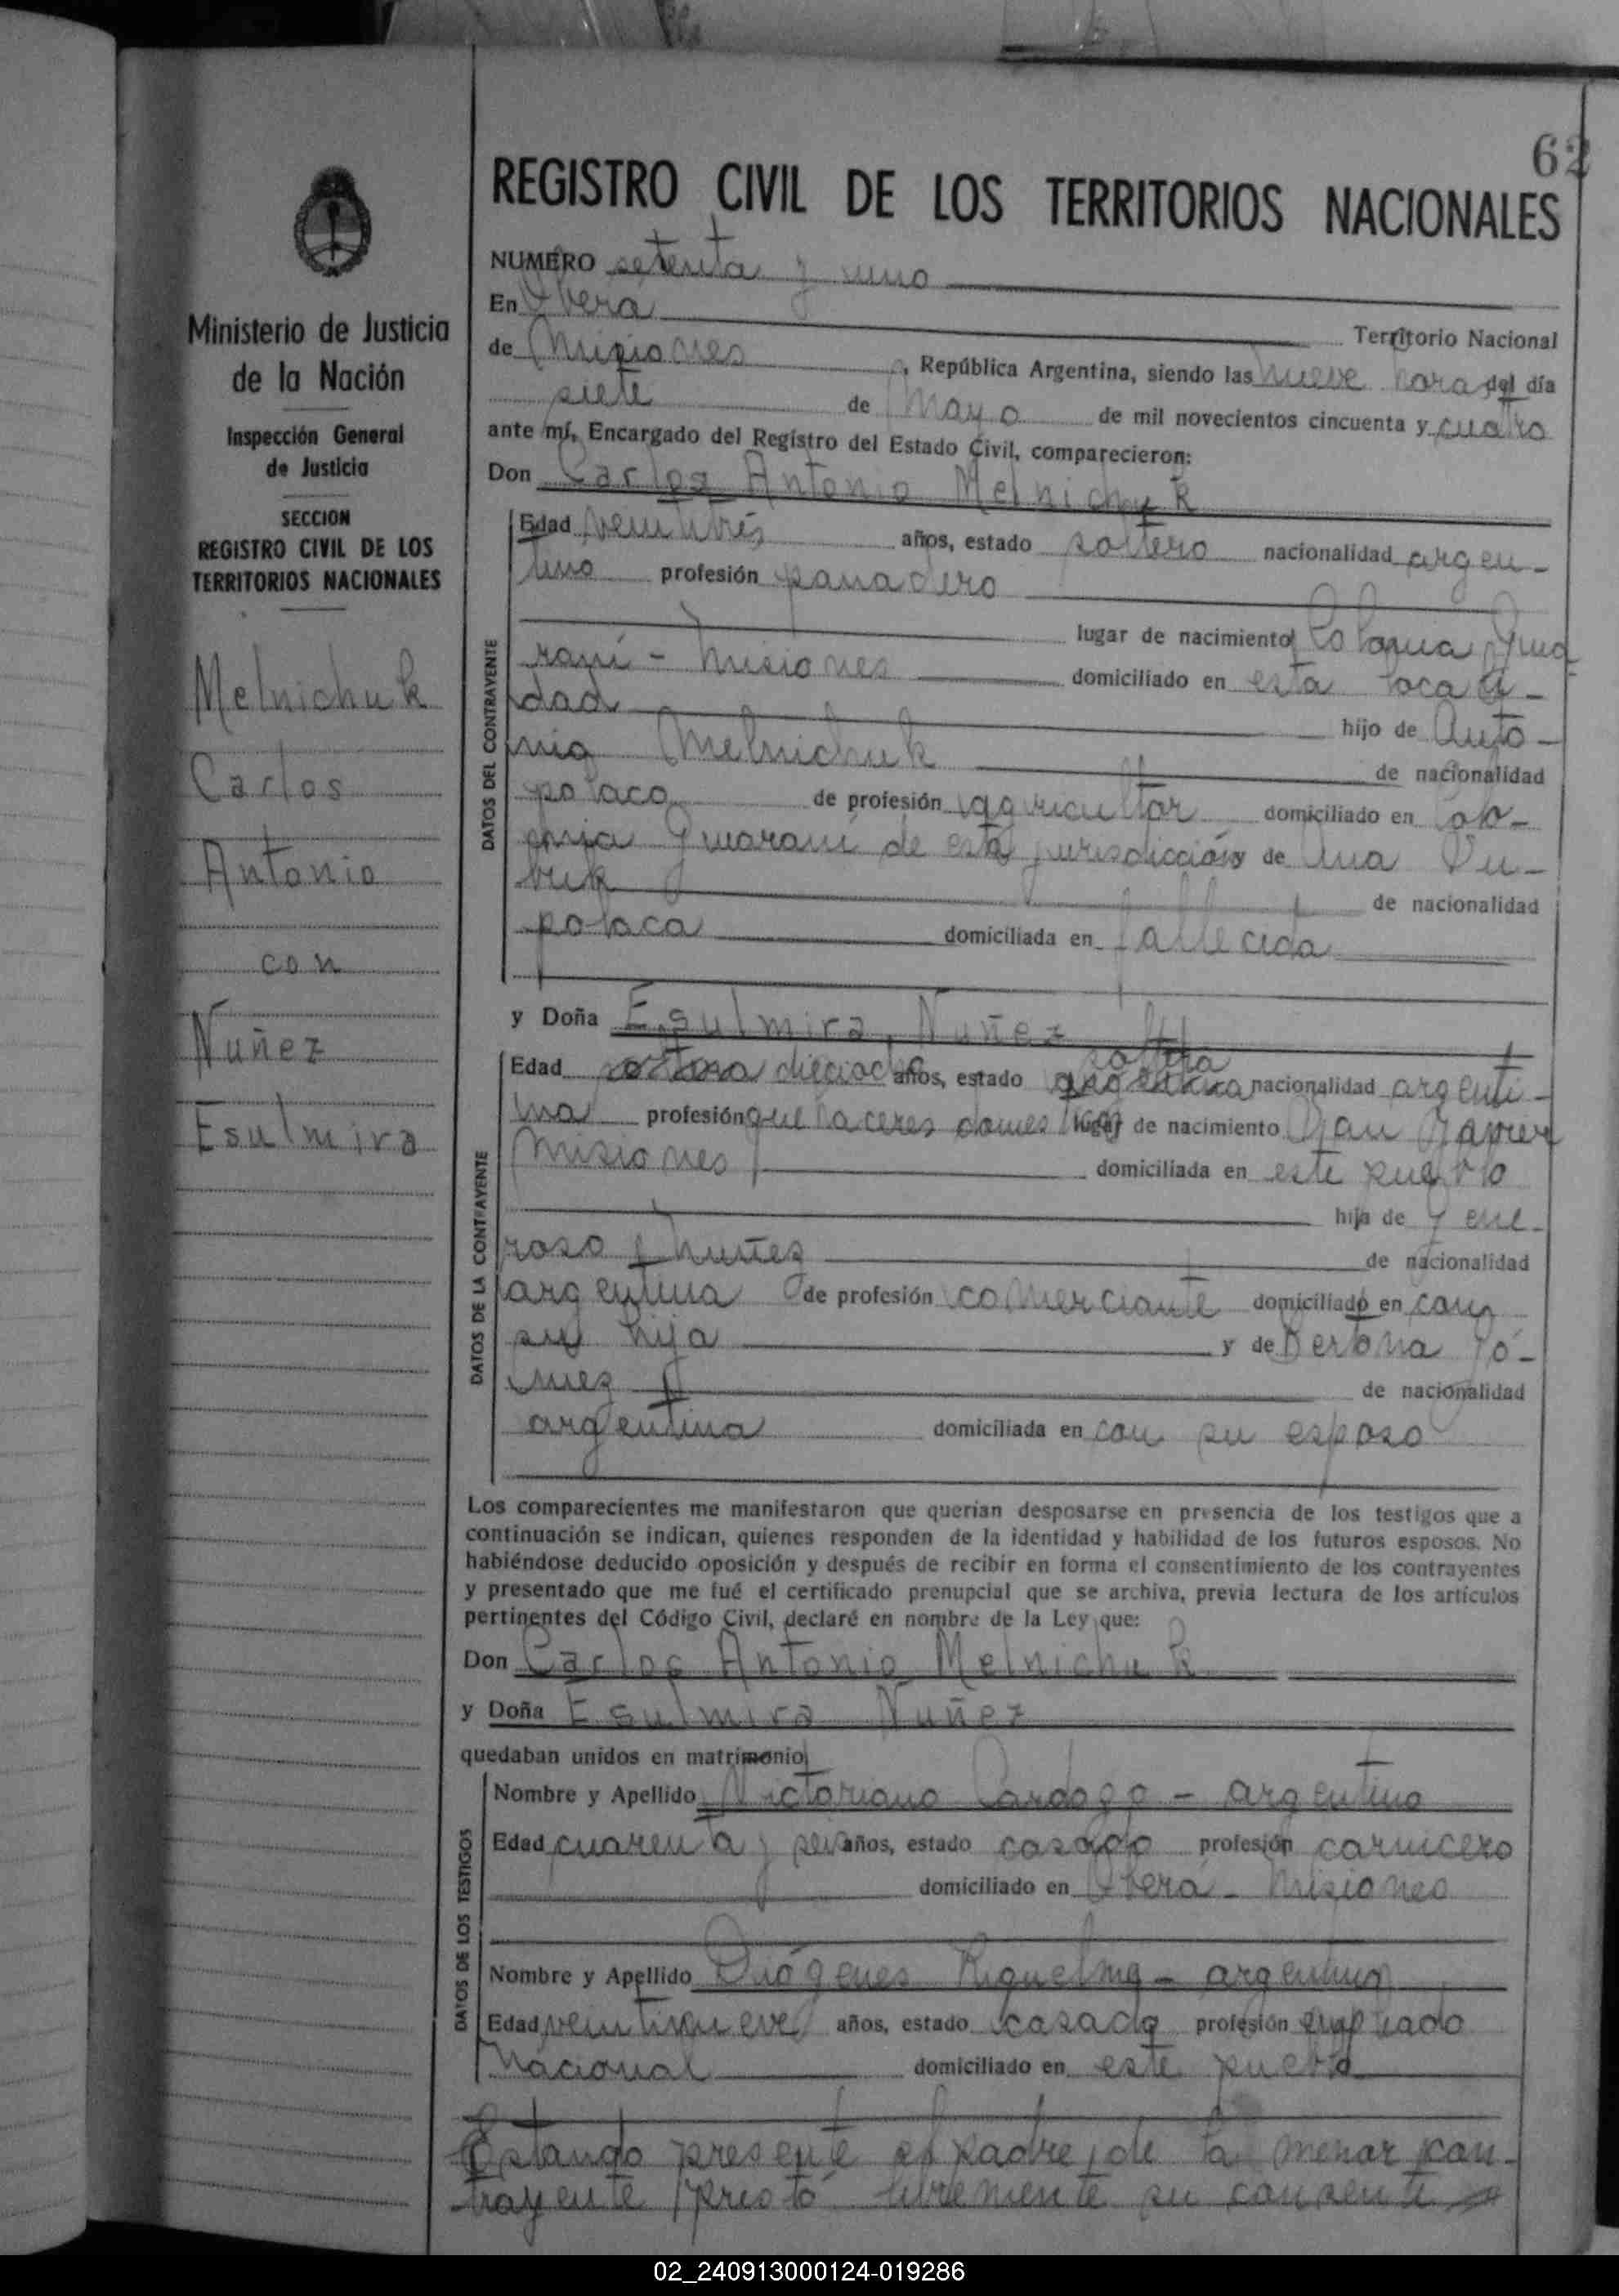 62
REGISTRO CIVIL DE LOS TERRITORIOS NACIONALES
NUMERO setenta y uno
En Oberá Territorio Nacional
de Misiones, República Argentina, siendo las nueve horas del día
siete de Mayo de mil novecientos cincuenta y cuatro
ante mí, Encargado del Registro del Estado Civil, comparecieron:
Don Carlos Antonio Melnichuk
DATOS DEL CONTRAYENTE
Edad veintitrés años, estado soltero nacionalidad argen-
tino profesión panadero
lugar de nacimiento Colonia Gua-
raní - Misiones domiciliado en esta locali-
dad hijo de Anto-
nio Melnichuk de nacionalidad
polaco de profesión agricultor domiciliado en Colo-
nia Guaraní de esta jurisdicción y de Ana
de nacionalidad
polaca domiciliada en fallecida
y Doña Esulmira Nuñez
DATOS DE LA CONTRAYENTE
Edad dieciocho años, estado soltera nacionalidad argenti-
na profesión quehaceres domesticos lugar de nacimiento San Javier
Misiones domiciliada en este pueblo
hija de Gene-
roso Nuñez de nacionalidad
argentina de profesión comerciante domiciliado en con
su hija y de Gó-
mez de nacionalidad
argentina domiciliada en con su esposo
Los comparecientes me manifestaron que querían desposarse en presencia de los testigos que a
continuación se indican, quienes responden de la identidad y habilidad de los futuros esposos. No
habiéndose deducido oposición y después de recibir en forma el consentimiento de los contrayentes
y presentado que me fué el certificado prenupcial que se archiva, previa lectura de los artículos
pertinentes del Código Civil, declaré en nombre de la Ley que:
Don Carlos Antonio Melnichuk
y Doña Esulmira Nuñez
quedaban unidos en matrimonio
DATOS DE LOS TESTIGOS
Nombre y Apellido Victoriano Cardozo - argentino
Edad cuarenta y seis años, estado casado profesión carnicero
domiciliado en Oberá - Misiones
Nombre y Apellido Diógenes Riquelme - argentino
Edad veintinueve años, estado casado profesión empleado
Nacional domiciliado en este pueblo
Estando presente el padre de la menor con-
trayente prestó libremente su consenti
Ministerio de Justicia
de la Nación
Inspección General
de Justicia
SECCION
REGISTRO CIVIL DE LOS
TERRITORIOS NACIONALES
Melnichuk
Carlos
Antonio
con
Nuñez
Esulmira
02_240913000124-019286